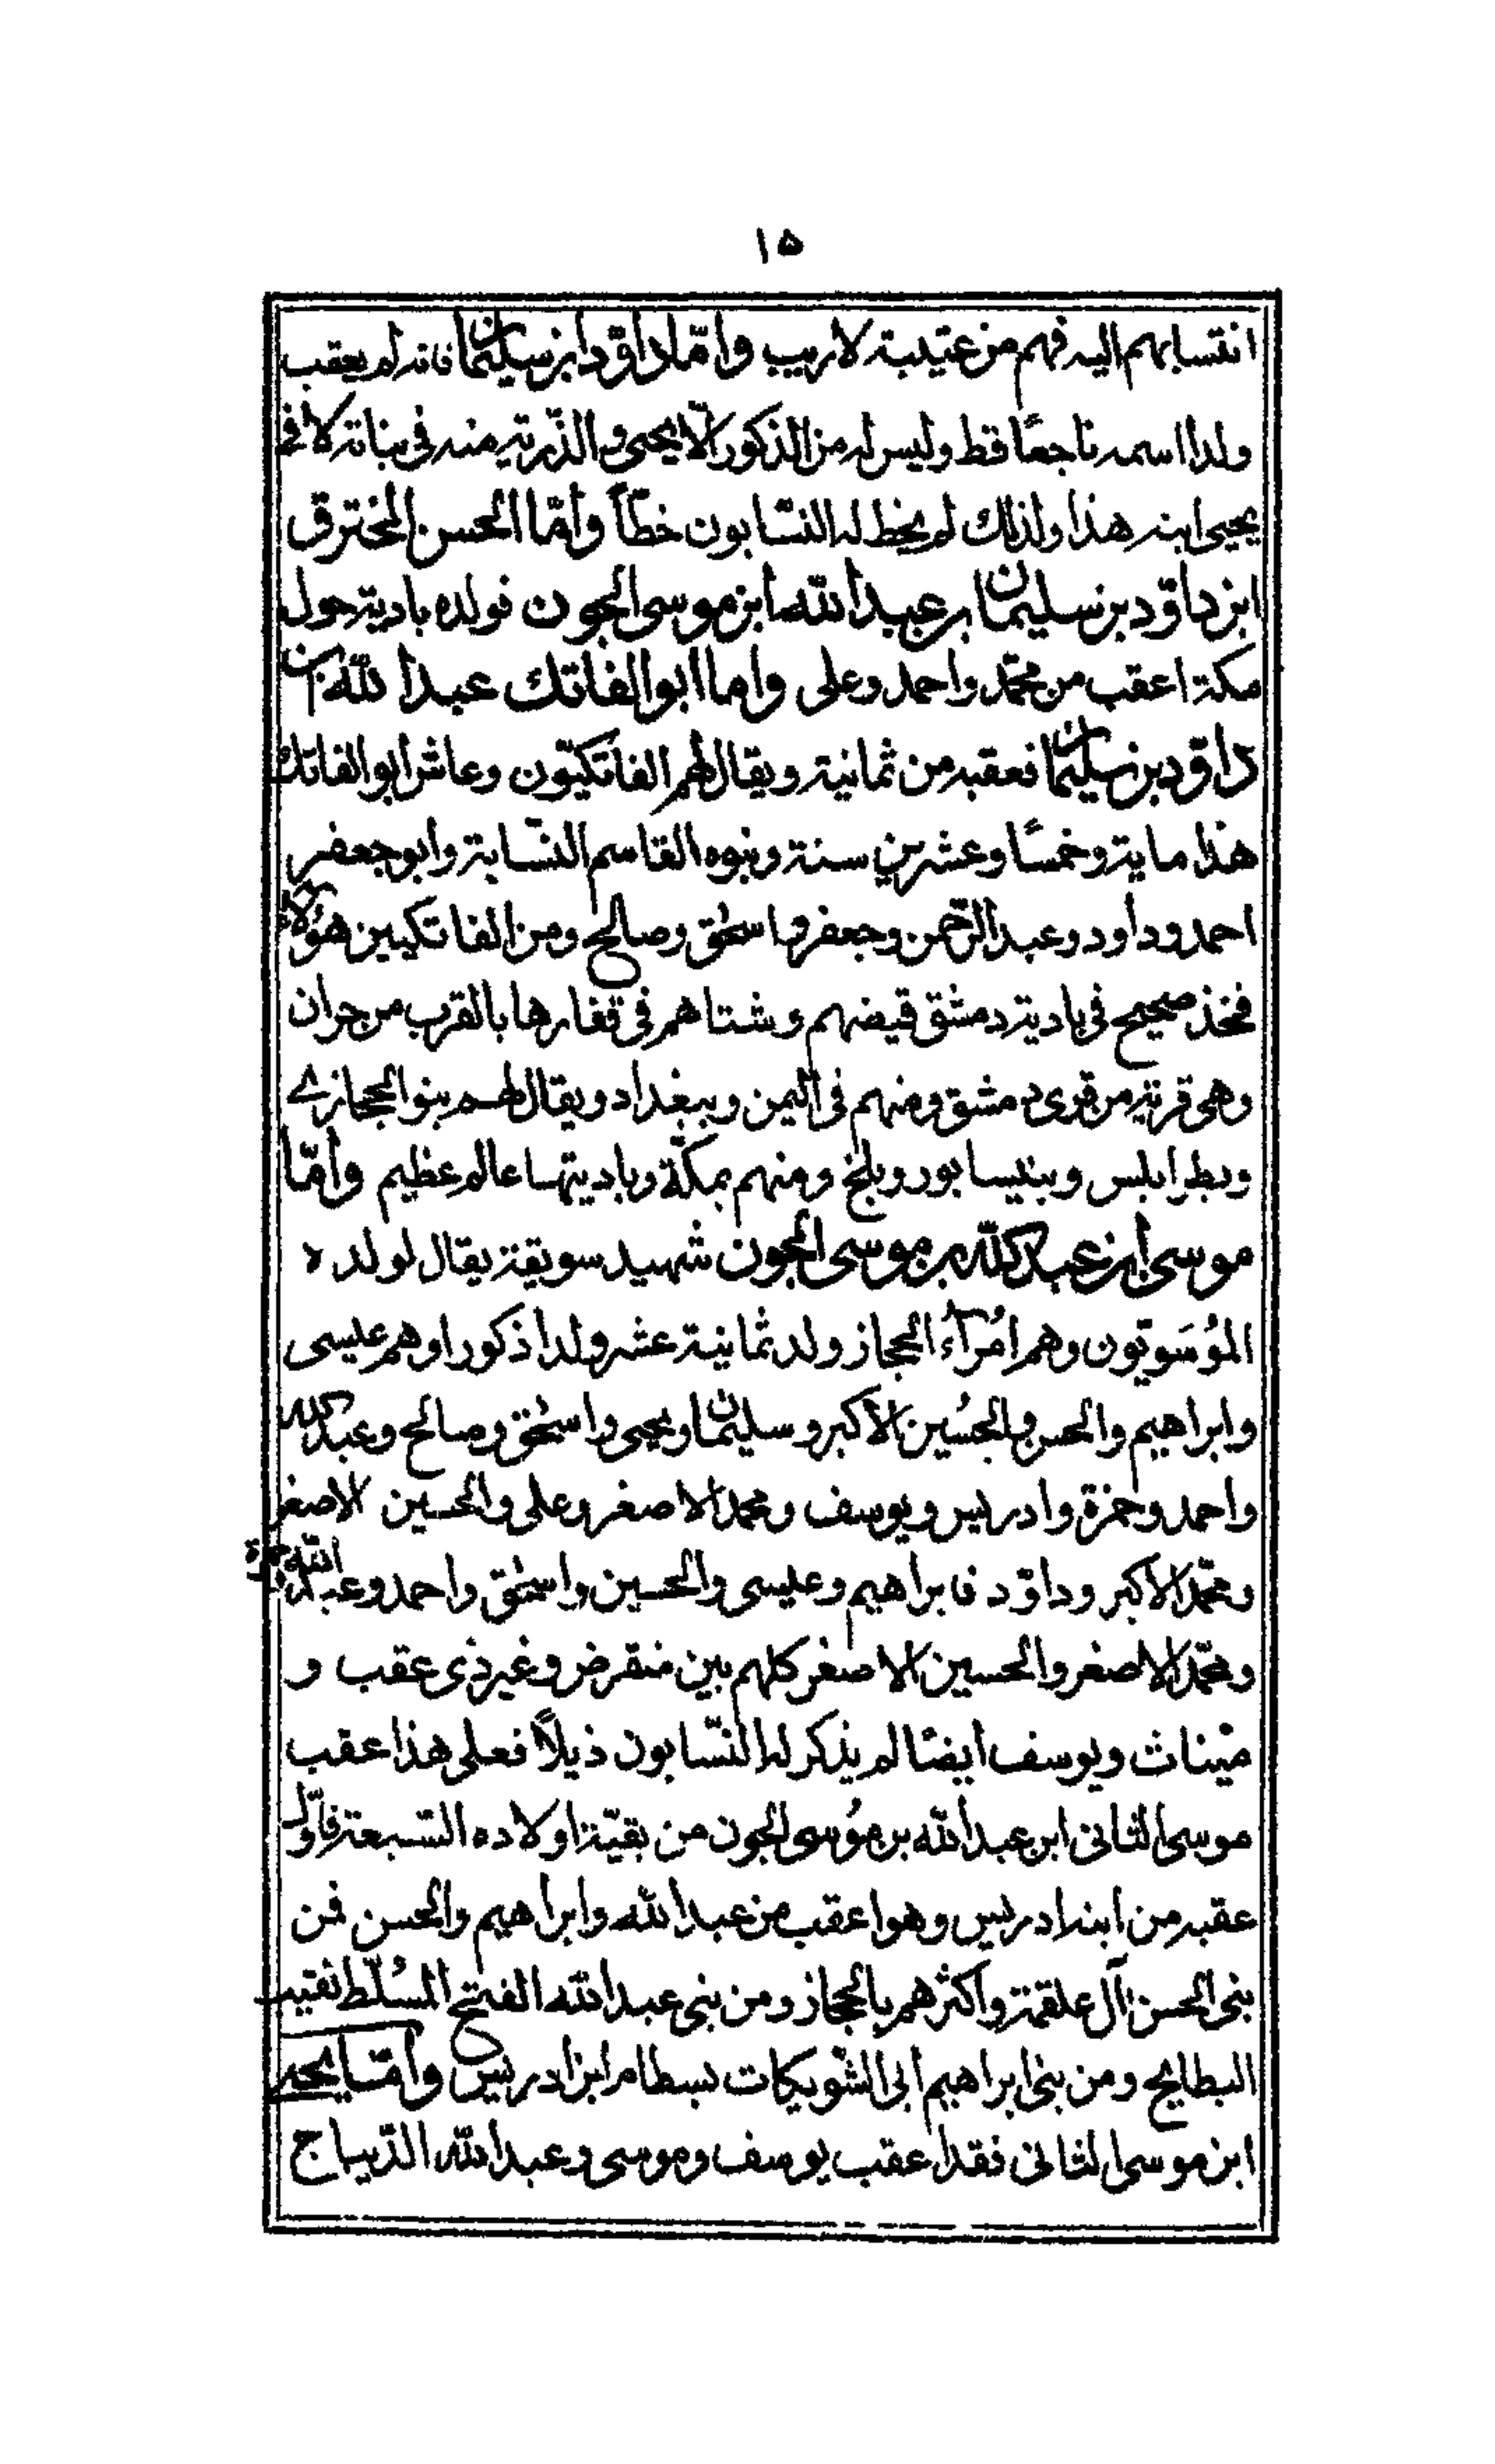 ١٥
انتسابهم اليه فهم من عتيبة لاريب وامّا داوٗد ابن سليمان فانه لم يعقب
ولدا اسمه ناجعًا قط وليس له من الذكور الّا يحيى والذّرية منه فى بناته لا فى
يحيى ابنه هذا ولذلك لم يخط له النسّابون خطّاً وامّا الحسن المخترق
ابن داوٗد بن سليمان بن عبد الله ابن موسى الجون فولده بادية حول
مكة اعقب من محمّد واحمد وعلى واما ابو الفاتك عبد الله بن
داوٗد بن سليمان فعقبه من ثمانية ويقال لهم الفاتكيّون وعاش ابو الفاتك
هذا ماية وخمسًا وعشرين سنة وبنوه القاسم النسّابة وابو جعفر
احمد وداود وعبد الرّحمن وجعفر واسحٰق وصالح ومن الفاتكيين هؤلاء
فخذ صحيح فى بادية دمشق قيضهم وشتاهم فى قفارها بالقرب من جران
وهى قرية من قرى دمشق ومنهم فى اليمن وببغداد ويقال لهم بنو الحجازى
وبطرابلس وبنيسابور وبلخ ومنهم بمكّة وباديتها عالم عظيم وامّا
موسى ابن عبد الله بن موسى الجون شهيد سويقة يقال لولده
المُوسَويّون وهم امُرآءُ الحجاز ولد ثمانية عشر ولدا ذكورا وهم عيسى
وابراهيم والحسن والحُسين الاكبر وسليمان ويحيى واسحٰق وصالح وعبد الله
واحمد وحمزة وادريس ويوسف ومحمد الاصغر وعلى والحسين الاصغر
ومحمّد الاكبر وداوٗد فابراهيم وعيسى والحسين واسحٰق واحمد وعبد الله حمزة
ومحمّد الاصغر والحسين الاصغر كلهم بين منقرض وغير ذى عقب و
مَيناث ويوسف ايضًا لم يذكر له النسّابون ذيلاً فعلى هذا عقب
موسى الثانى ابن عبد الله بن مُوسى الجون من بقيّة اولاده السّبعة فاوّل
عقبه من ابنه ادريس وهو اعقب من عبد الله وابراهيم والحسن فمن
بنى الحسن آل علقمة واكثرهم بالحجاز ومن بنى عبد الله الفتح المسُلّط نقيب
البطايح ومن بنى ابراهيم ابى الشّويكات بسطام ابن ادريس وامّا يحيى
ابن موسى الثانى فقد اعقب يوسف وموسى وعبد الله الدّيباج